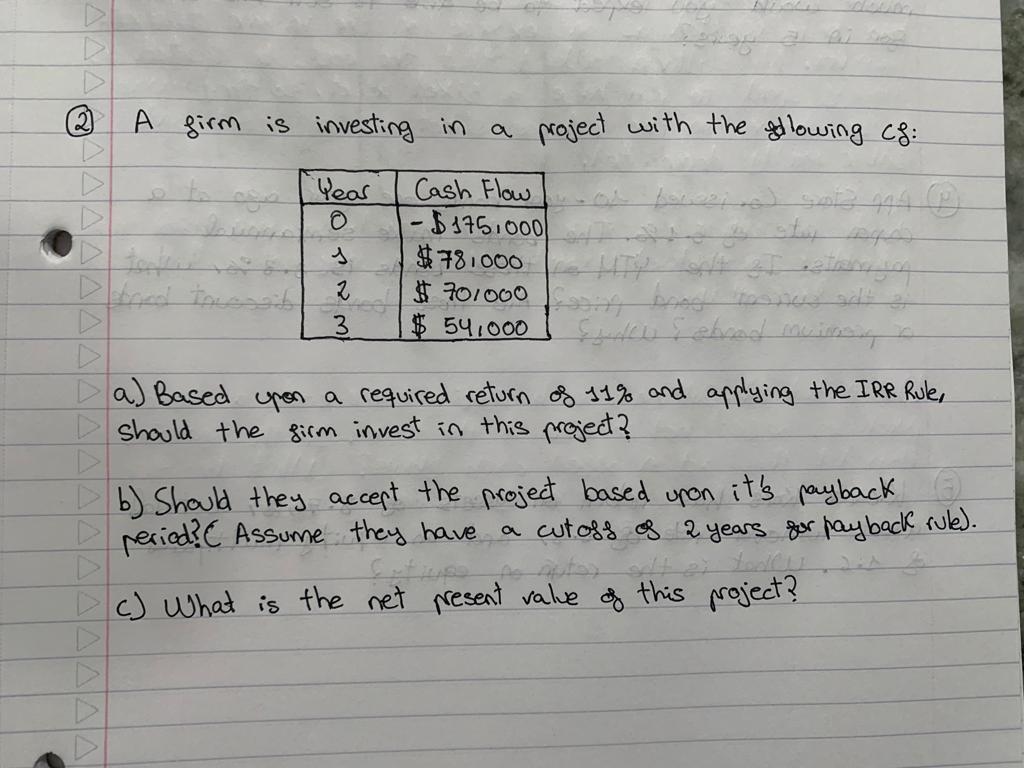 ② A firm is investing in a project with the following cf:
Year Cash Flow
0 -$175,000
1 $78,000
2 $ 70,000
3 $ 54,000
a) Based upon a required return of 11% and applying the IRR Rule,
should the firm invest in this project?
b) Should they accept the project based upon it's payback
period? (Assume they have a cutoff of 2 years for payback rule).
c) What is the net present value of this project?